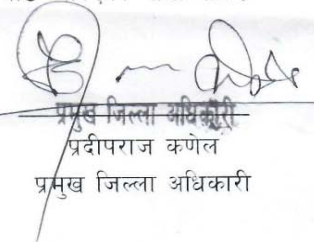 प्रमुख जिल्ला अधिकारी
प्रदीपराज कणेल
प्रमुख जिल्ला अधिकारी